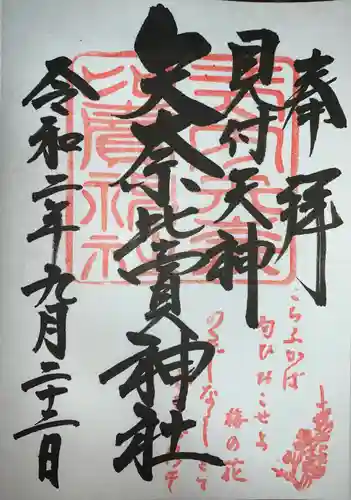 奉拝
見付天神
矢奈比賣神社
令和二年九月二十二日
こちふかば
匂ひおこせよ
梅の花